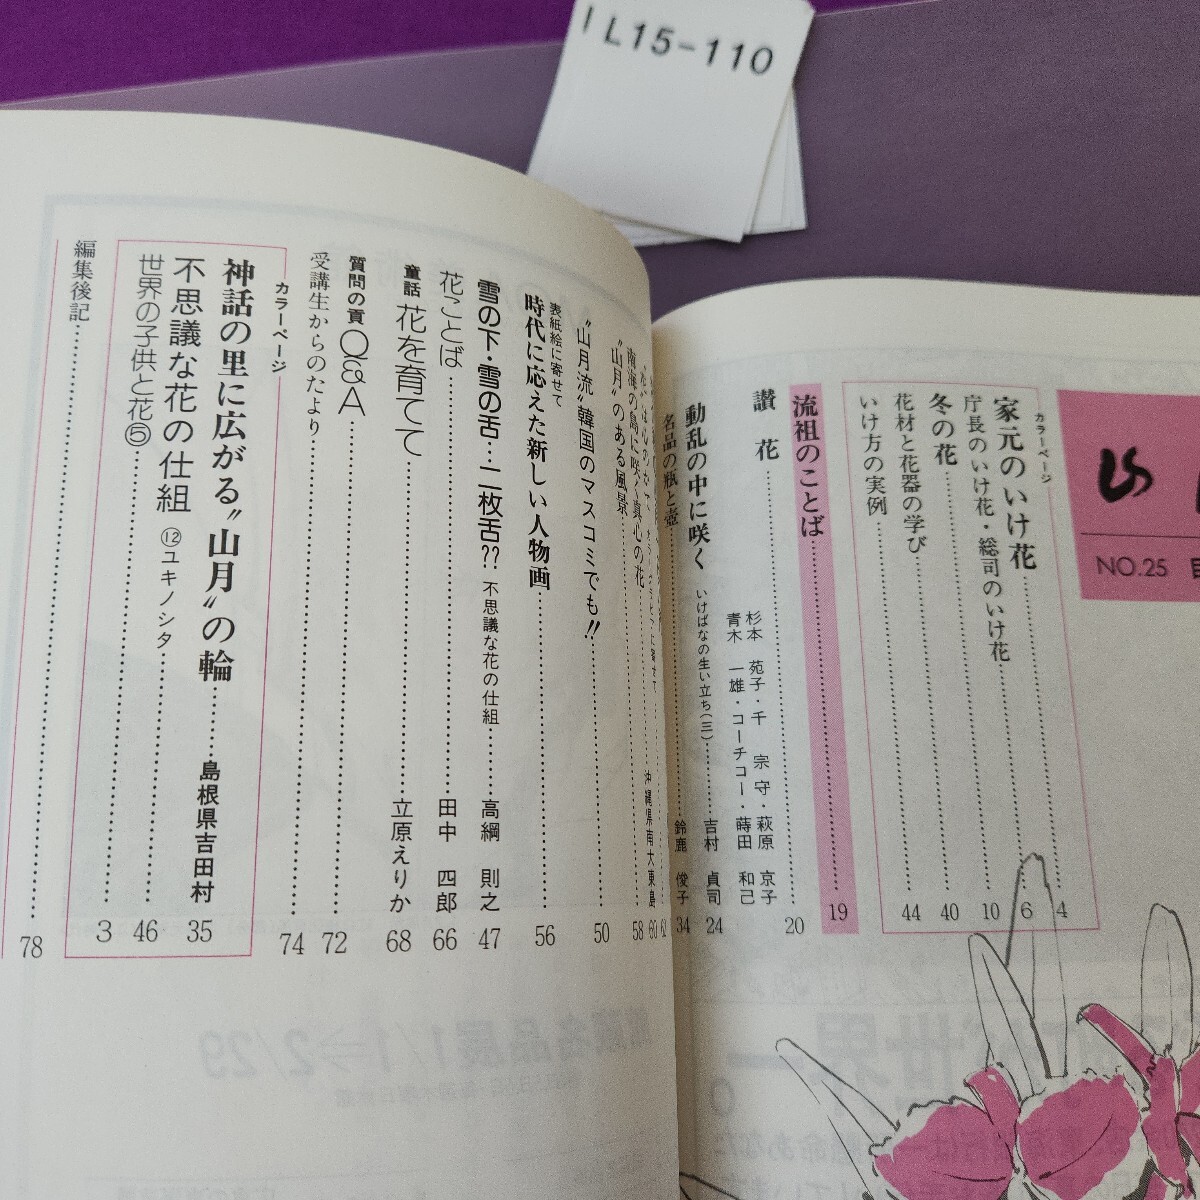 IL15-110
NO.25
カラーページ
家元のいけ花
庁長のいけ花・総司のいけ花 6
冬の花 10
花材と花器の学び 40
いけ方の実例 44
4
流祖のことば 19
讃花 20
杉本 苑子・千 宗守・萩原 京子
青木 一雄・コーチコー・蒔田 和己
動乱の中に咲く いけばなの生い立ち(三) 吉村 貞司 24
名品の瓶と壺 鈴鹿 俊子 34
62
南海の島に咲く真心の花 沖縄県南大東島 60
"山月"のある風景 58
"山月流"韓国のマスコミでも!! 50
表紙絵に寄せて
時代に応えた新しい人物画 56
雪の下・雪の舌…二枚舌?? 不思議な花の仕組 高綱 則之 47
花ことば 田中 四郎 66
童話 花を育てて 立原えりか 68
質問の頁 Q&A 72
受講生からのたより 74
カラーページ
神話の里に広がる"山月"の輪 島根県吉田村 35
不思議な花の仕組 ⑫ユキノシタ 46
世界の子供と花⑤ 3
編集後記 78